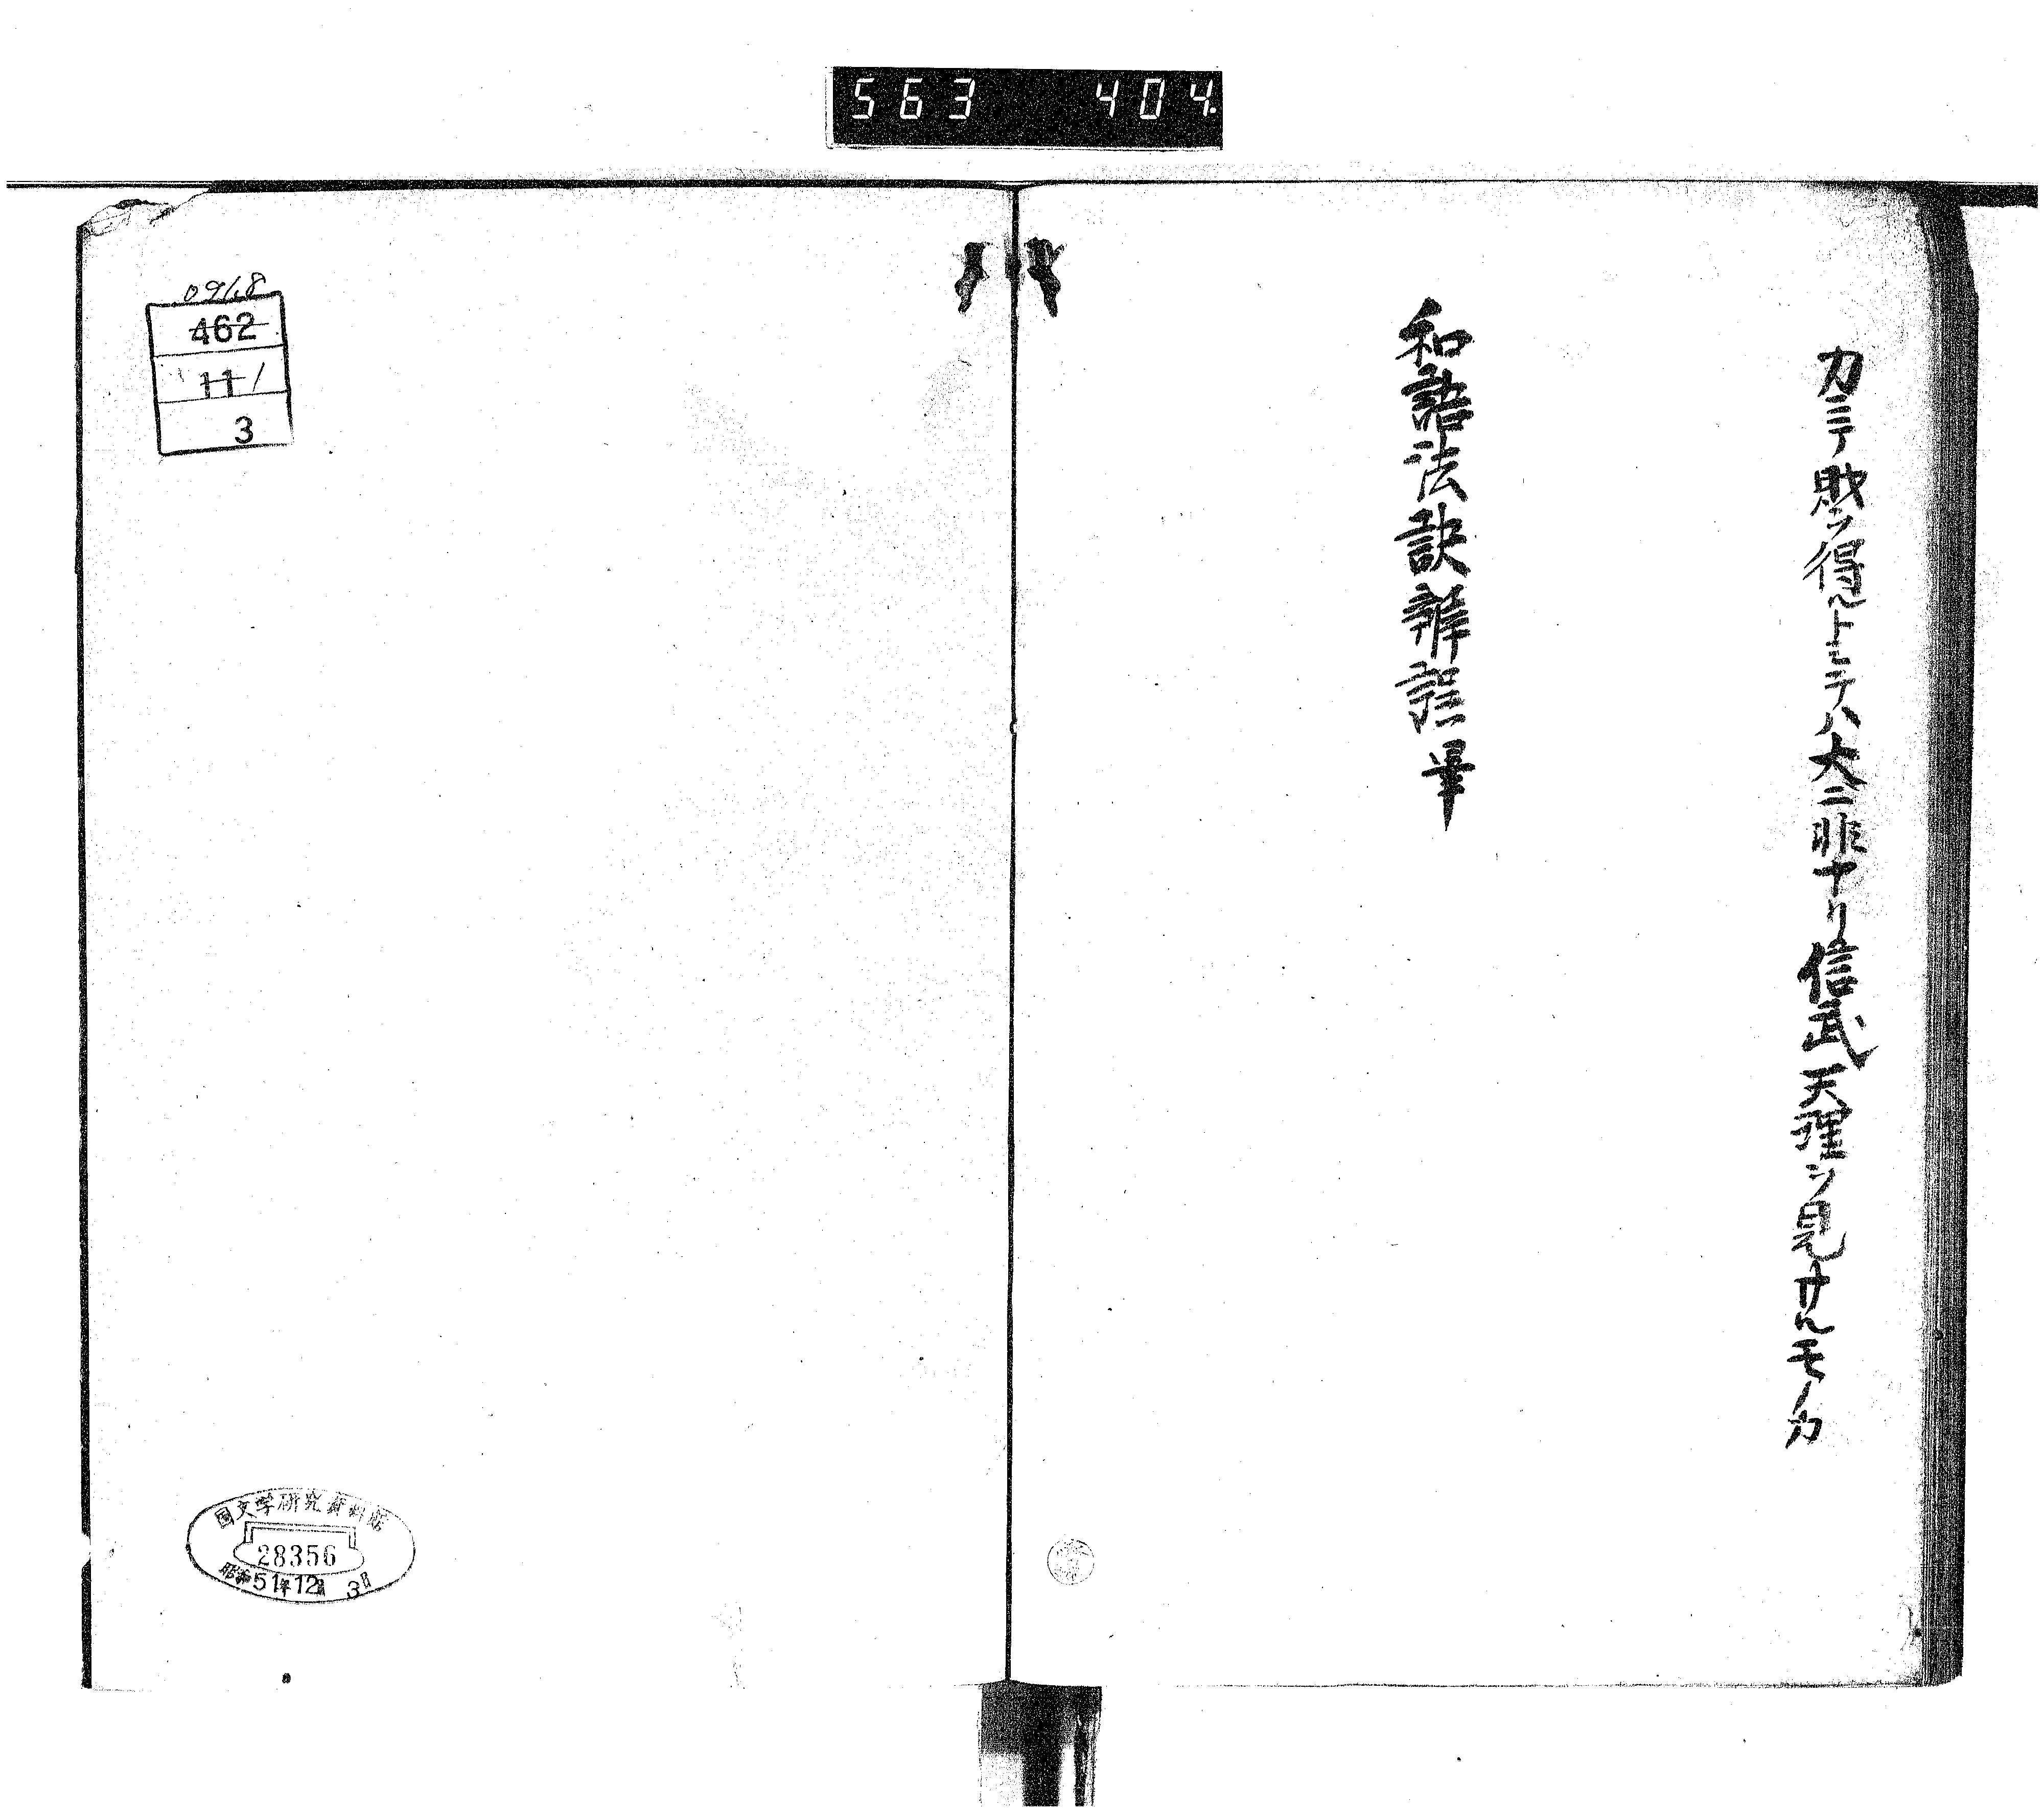 563 404
カニテ敗ヲ得ルトシテハ大ニ非ナリ信武天理ヲ見サルモノカ
和語法訣辨証畢
091.8
462
11 1
3
国文学研究資料館
28356
昭和51年12月3日